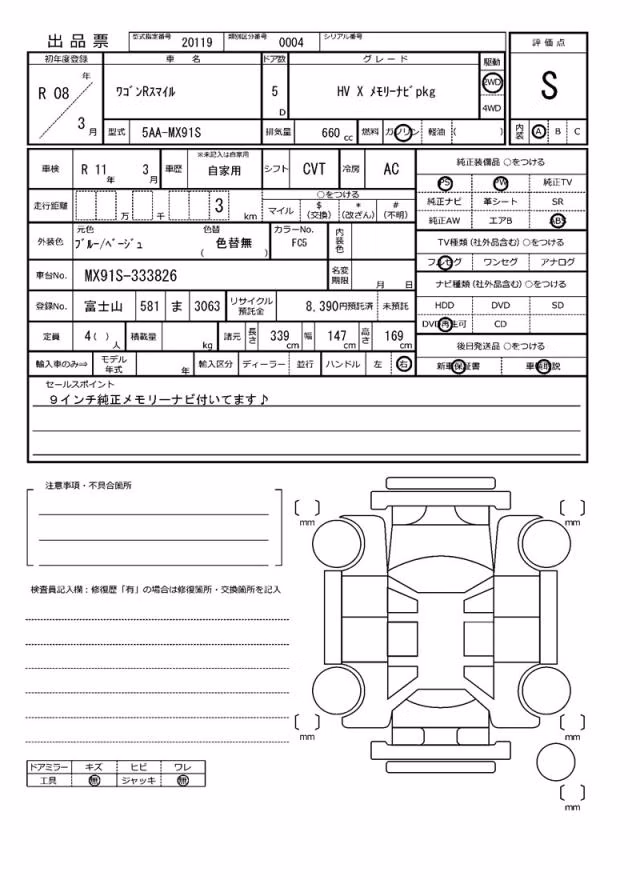 出品票 型式指定番号 20119 類別区分番号 0004 シリアル番号
評価点
S
初年度登録 車名 ドア数 グレード 駆動
R 08 年 3 月 ワゴンRスマイル 5 D HV X メモリーナビpkg 2WD 4WD
型式 5AA-MX91S 排気量 660 cc 燃料 ガソリン 軽油 ( )
内装 A B C
車検 R 11 年 3 月 車歴 ※未記入は自家用 自家用 シフト CVT 冷房 AC
走行距離 万 千 3 km
○をつける
マイル $ (交換) * (改ざん) # (不明)
外装色 元色 ブルー/ベージュ 色替 ( 色替無 ) カラーNo. FC5 内装色
車台No. MX91S-333826 名変期限 月 日
登録No. 富士山 581 ま 3063 リサイクル預託金 8,390円預託済 未預託
定員 4 ( ) 人 積載量 kg 諸元 長さ 339 cm 幅 147 cm 高さ 169 cm
輸入車のみ⇒ モデル年式 年 輸入区分 ディーラー 並行 ハンドル 左 右
純正装備品 ○をつける
PS PW 純正TV
純正ナビ 革シート SR
純正AW エアB ABS
TV種類 (社外品含む) ○をつける
フルセグ ワンセグ アナログ
ナビ種類 (社外品含む) ○をつける
HDD DVD SD
DVD再生可 CD
後日発送品 ○をつける
新車保証書 車輌取説
セールスポイント
9インチ純正メモリーナビ付いてます♪
注意事項・不具合箇所
検査員記入欄：修復歴「有」の場合は修復箇所・交換箇所を記入
mm
mm
mm
mm
mm
ドアミラー キズ ヒビ ワレ
工具 無 ジャッキ 無